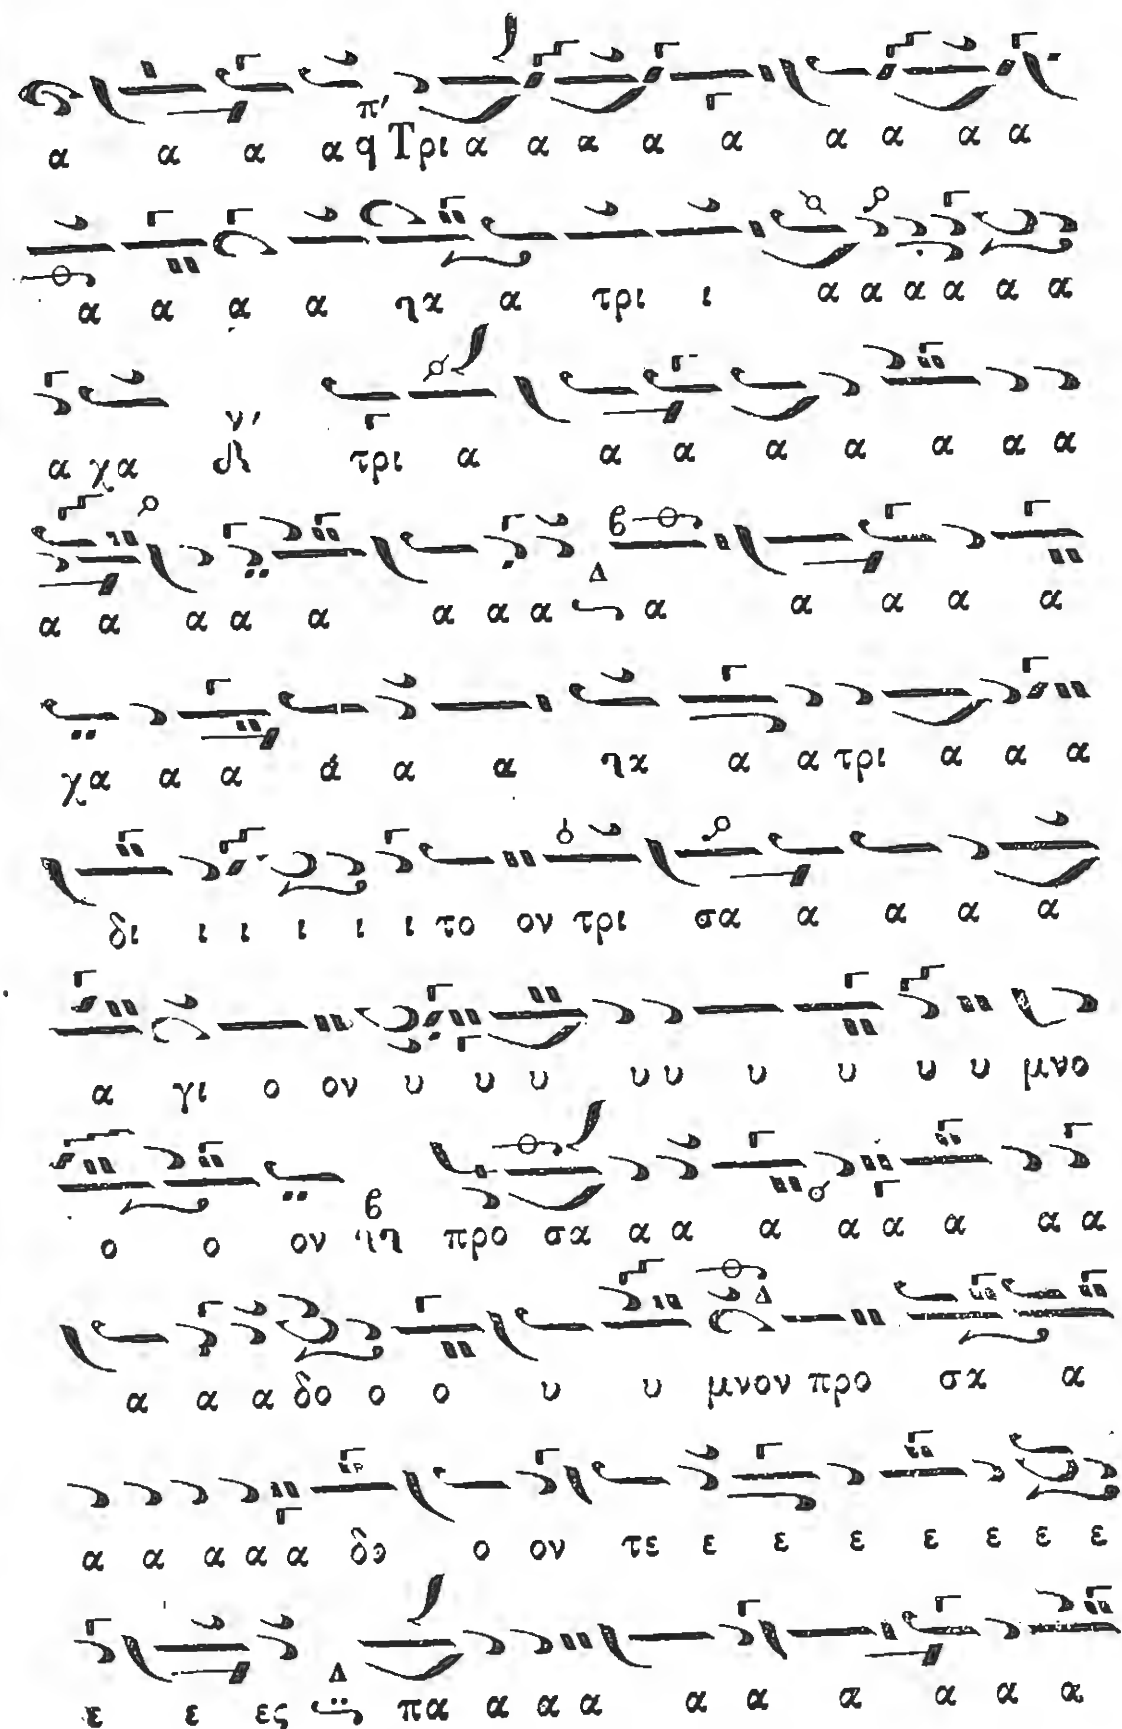 α α α α π' q Τρι α α α α α α α α α
α α α α ηκ α τρι ι α α α α α α
α χα ν' τρι α α α α α α α α
α α α α α α α α Δ α β α α α α
χα α α ά α α ηκ α α τρι α α α
δι ι ι ι ι ι το ον τρι σα α α α α
α γι ο ον υ υ υ υ υ υ υ υ υ μνο
ο ο ον β προ σα α α α α α α α α
α α α δο ο ο υ υ μνον προ σα α Δ
α α α α α δο ο ον τε ε ε ε ε ε ε ε
ε ε ες Δ πα α α α α α α α α α